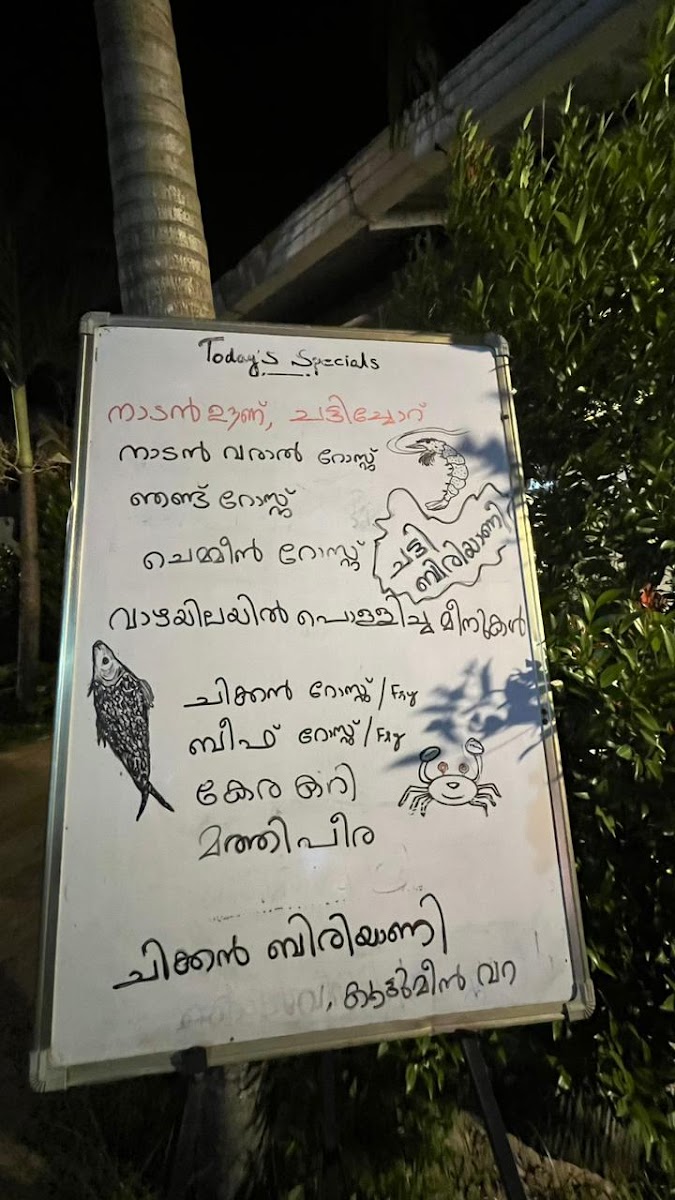 Today's Specials
നാടൻ ഊണ്, ചട്ടിച്ചോറ്
നാടൻ വരാൽ റോസ്റ്റ്
ഞണ്ട് റോസ്റ്റ്
ചെമ്മീൻ റോസ്റ്റ്
ചട്ടി
ബിരിയാണി
വാഴയിലയിൽ പൊള്ളിച്ച മീനുകൾ
ചിക്കൻ റോസ്റ്റ്/Fry
ബീഫ് റോസ്റ്റ്/Fry
കേര കറി
മത്തി പീര
ചിക്കൻ ബിരിയാണി
വറ